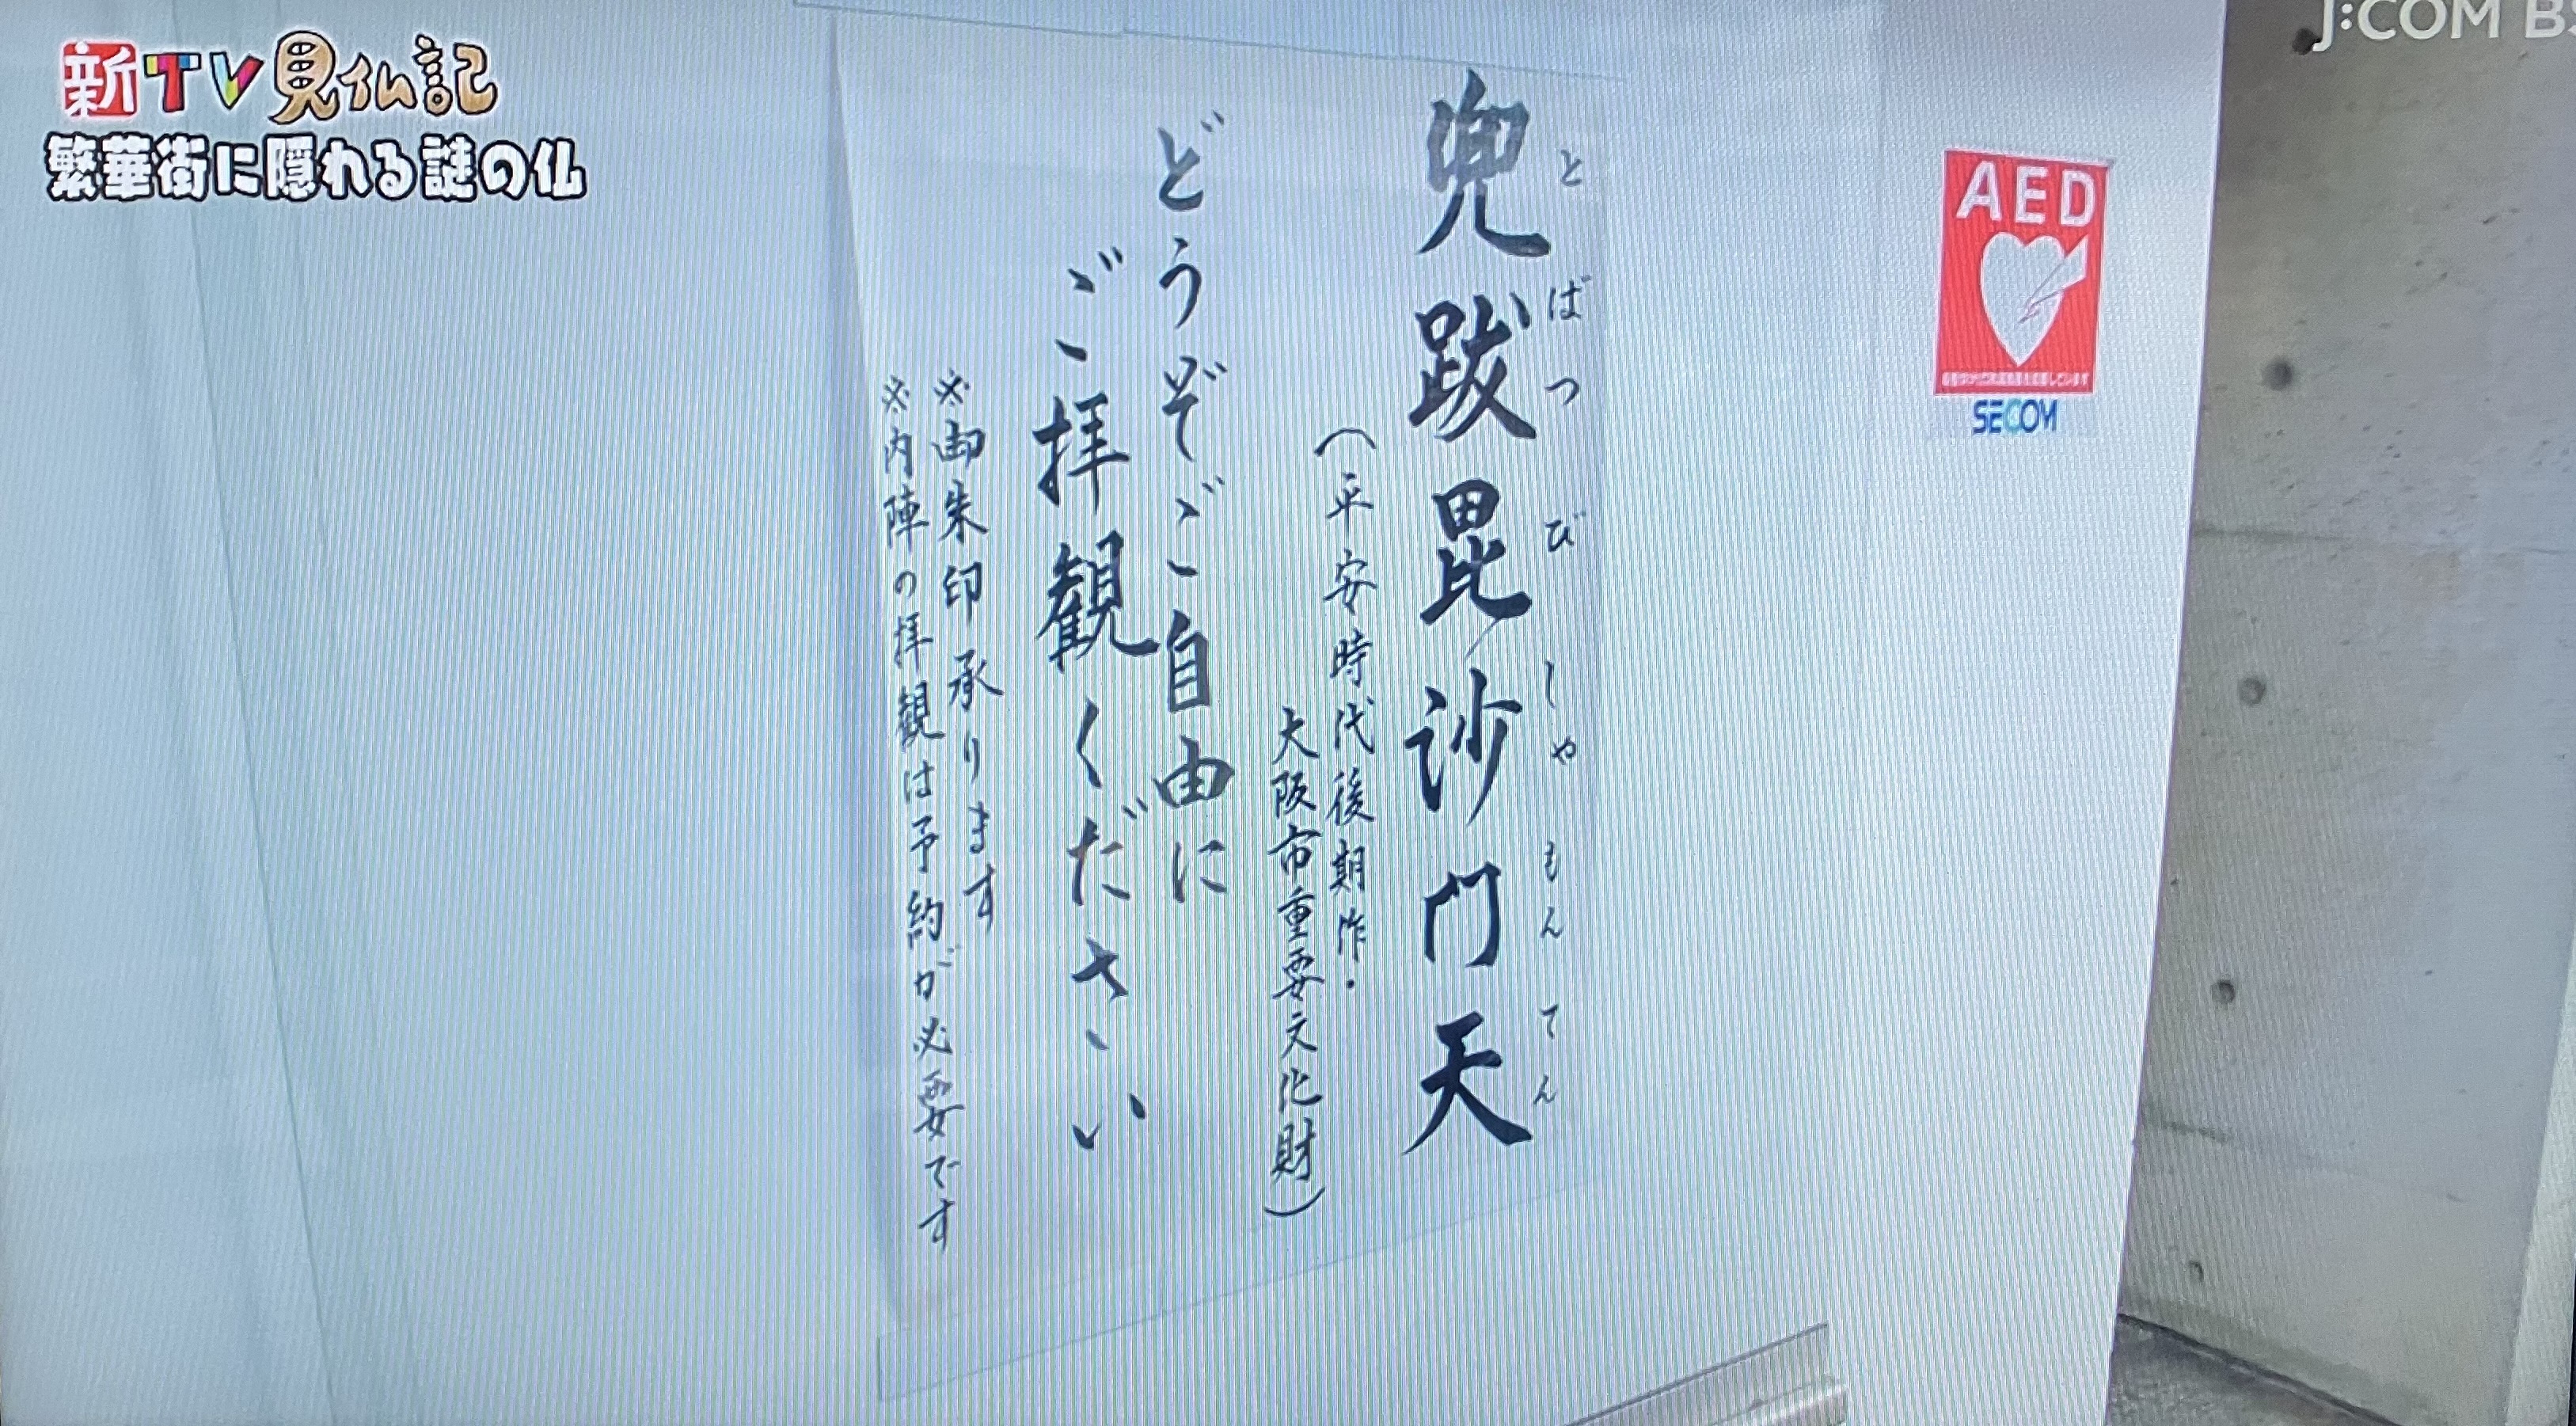 新TV見仏記
繁華街に隠れる謎の仏
J:COM BS
兜跋毘沙門天
とばつびしゃもんてん
(平安時代後期作・
大阪市重要文化財)
どうぞご自由に
ご拝観ください
※御朱印承ります
※内陣の拝観は予約が必要です
AED
SECOM